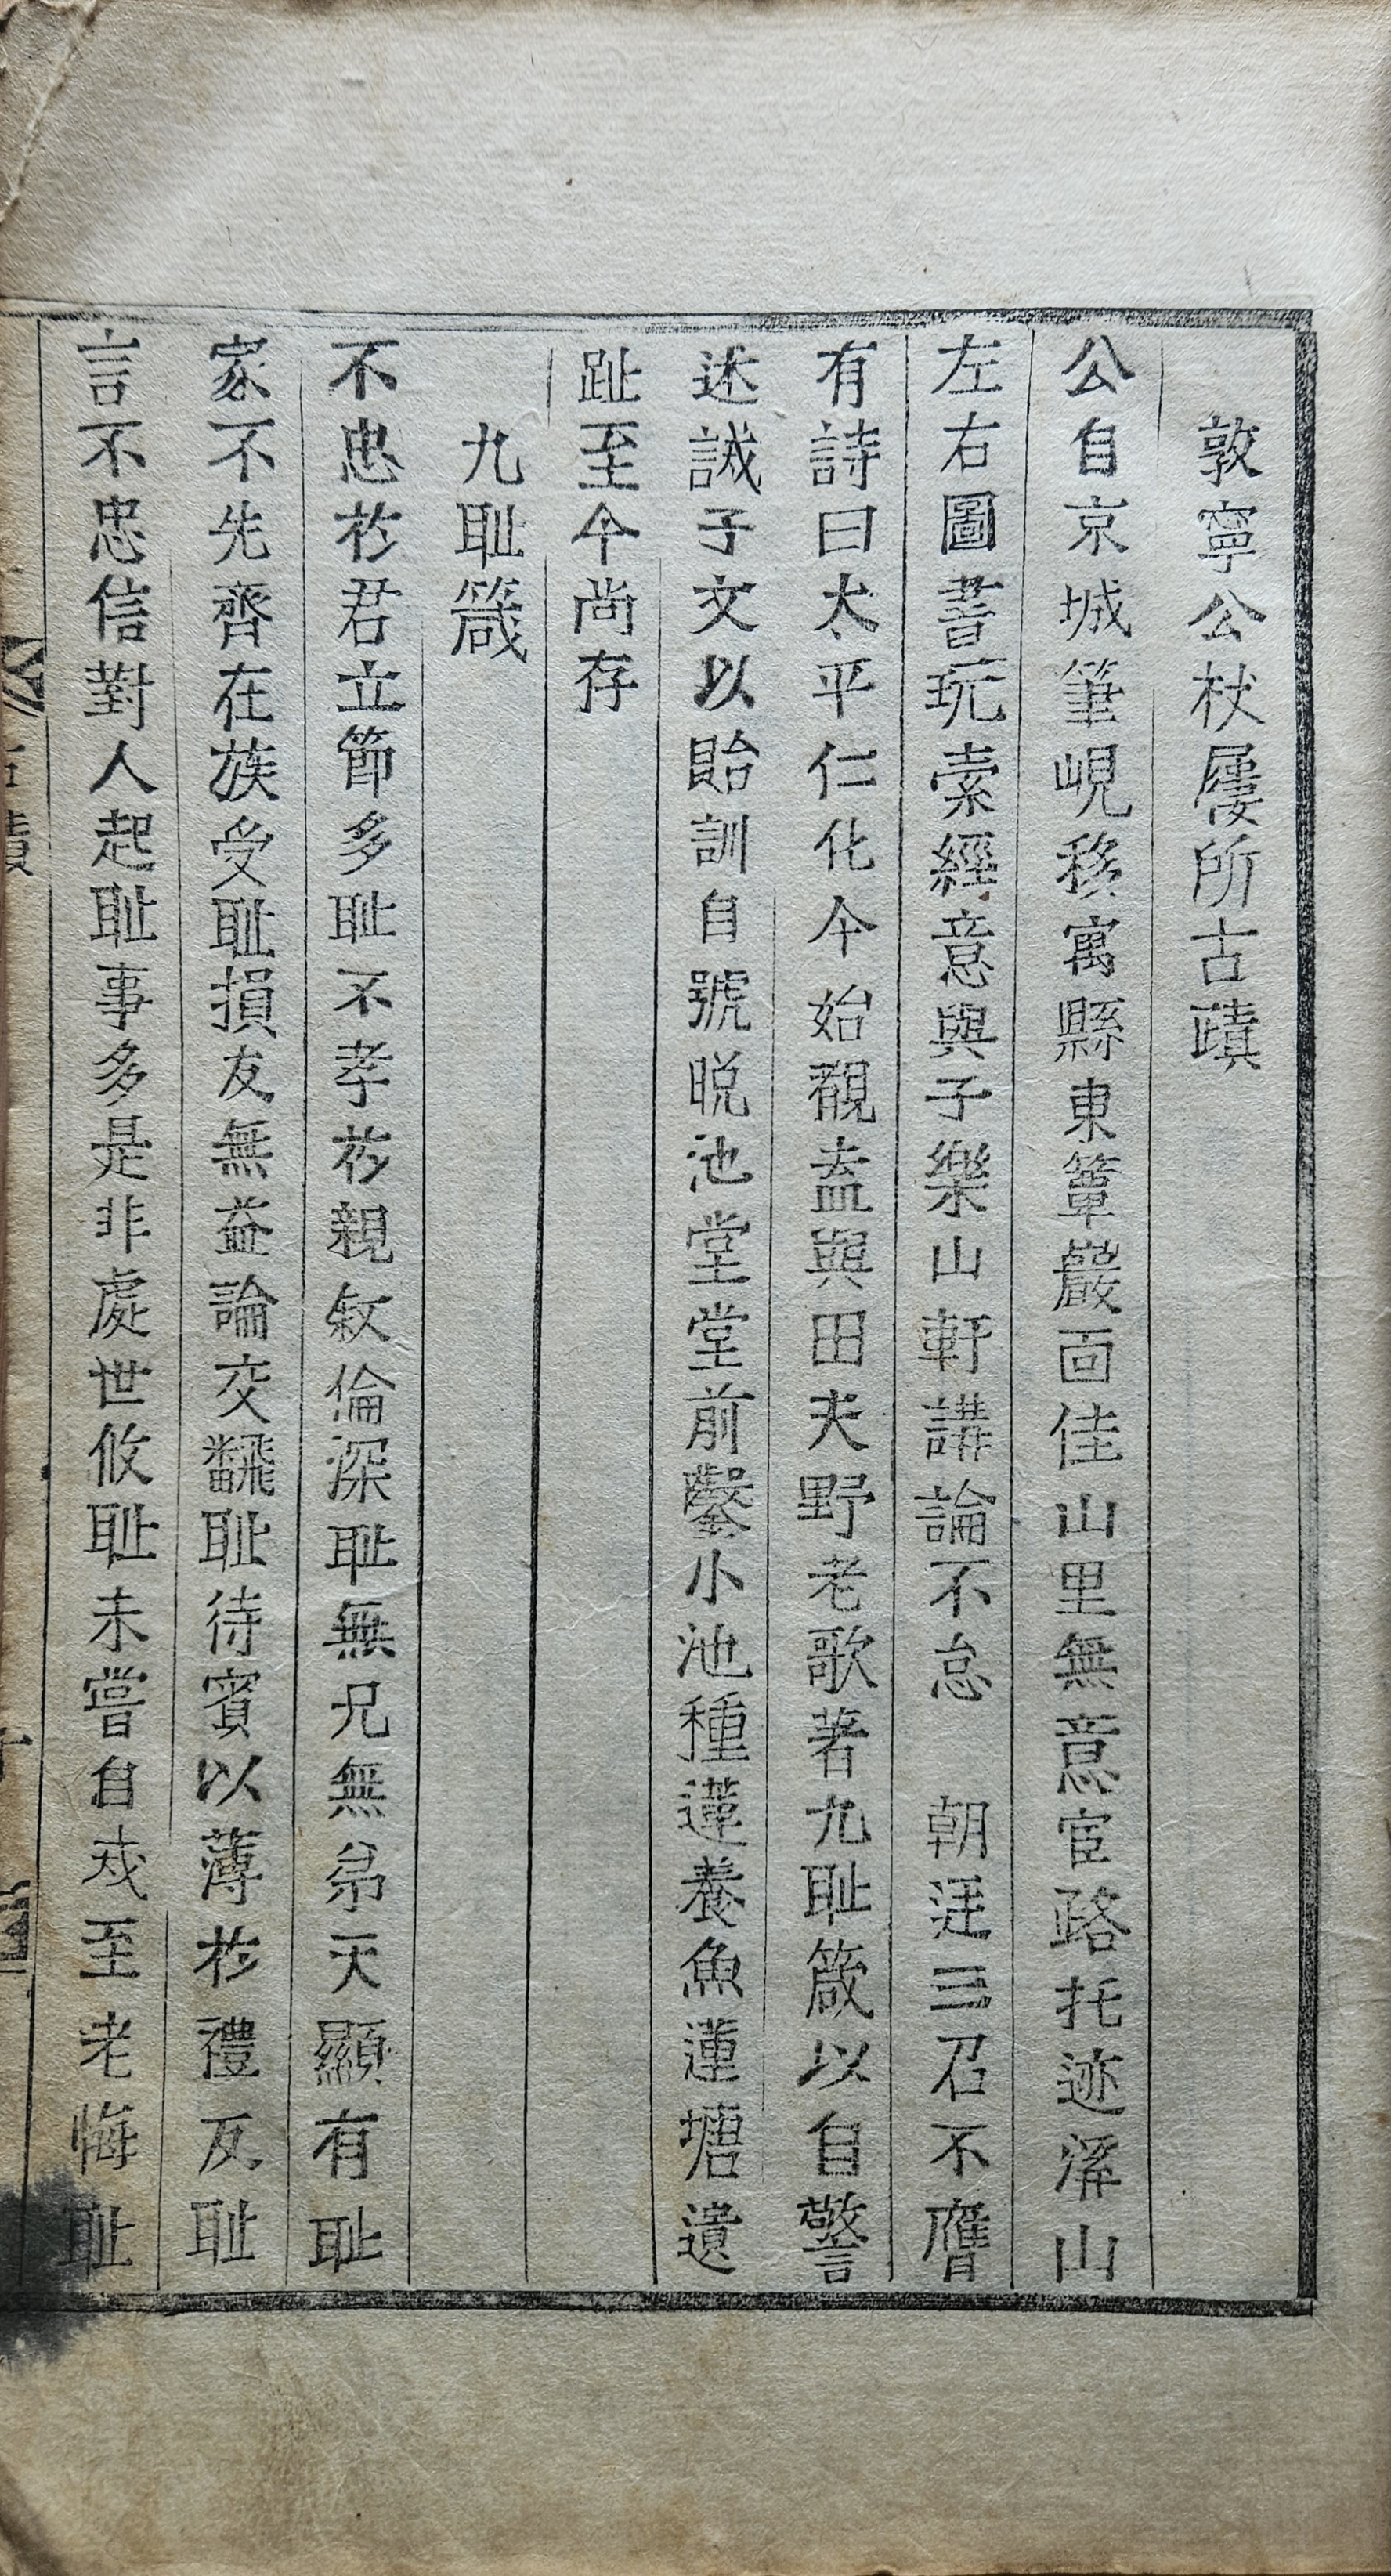 敦寧公杖屨所古蹟
公自京城筆峴移寓縣東簟巖面佳山里無意宦路托迹溪山
左右圖書玩索經意與子樂山軒講論不怠 朝廷三召不膺
有詩曰太平仁化今始覩盍與田夫野老歌著九耻箴以自警
述誡子文以貽訓自號晩池堂堂前鑿小池種蓮養魚蓮塘遺
趾至今尚存
九耻箴
不忠於君立節多耻不孝於親叙倫深耻無兄無弟天顯有耻
家不先齊在族受耻損友無益論交飜耻待賓以薄於禮反耻
言不忠信對人起耻事多是非處世攸耻未嘗自戒至老悔耻